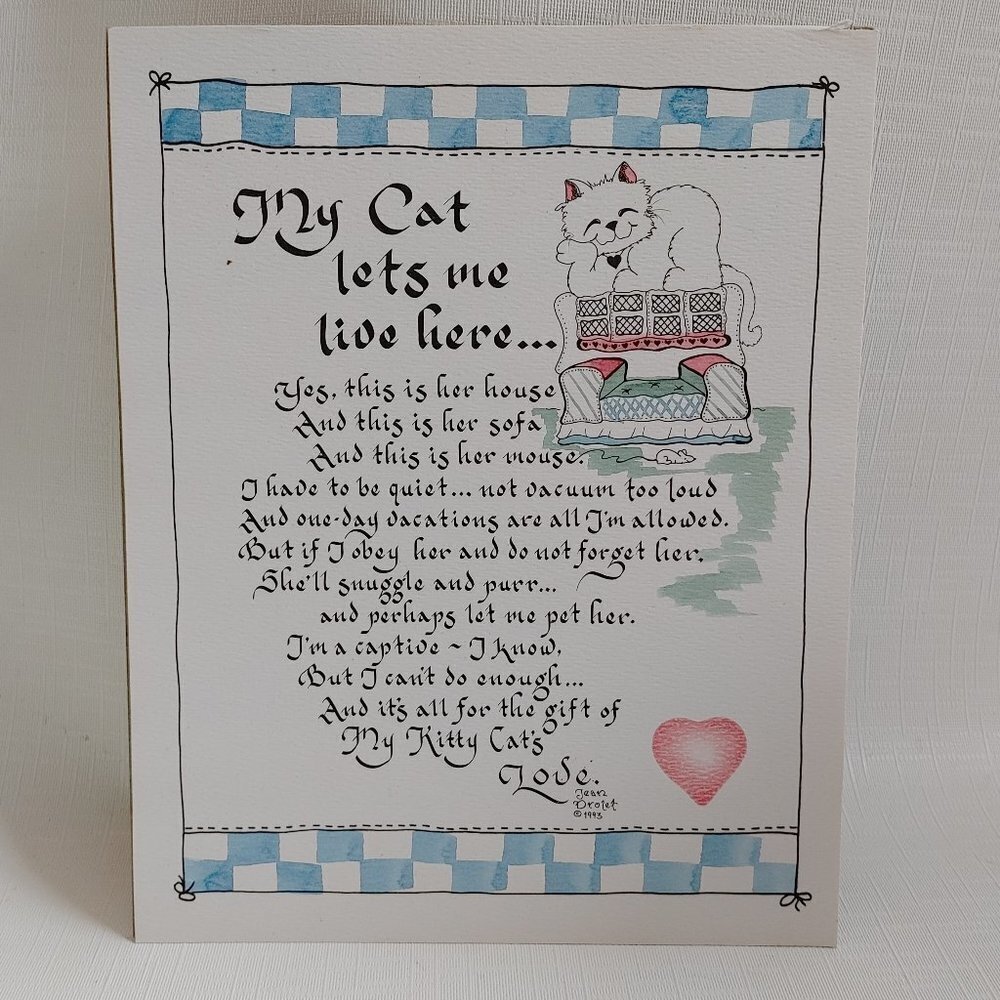 My Cat
lets me
live here...
Yes, this is her house
And this is her sofa
And this is her mouse.
I have to be quiet... not vacuum too loud
And one-day vacations are all I'm allowed.
But if I obey her and do not forget her,
She'll snuggle and purr...
and perhaps let me pet her.
I'm a captive ~ I know,
But I can't do enough...
And it's all for the gift of
My Kitty Cat's
Love.
Jean
Drolet
© 1993